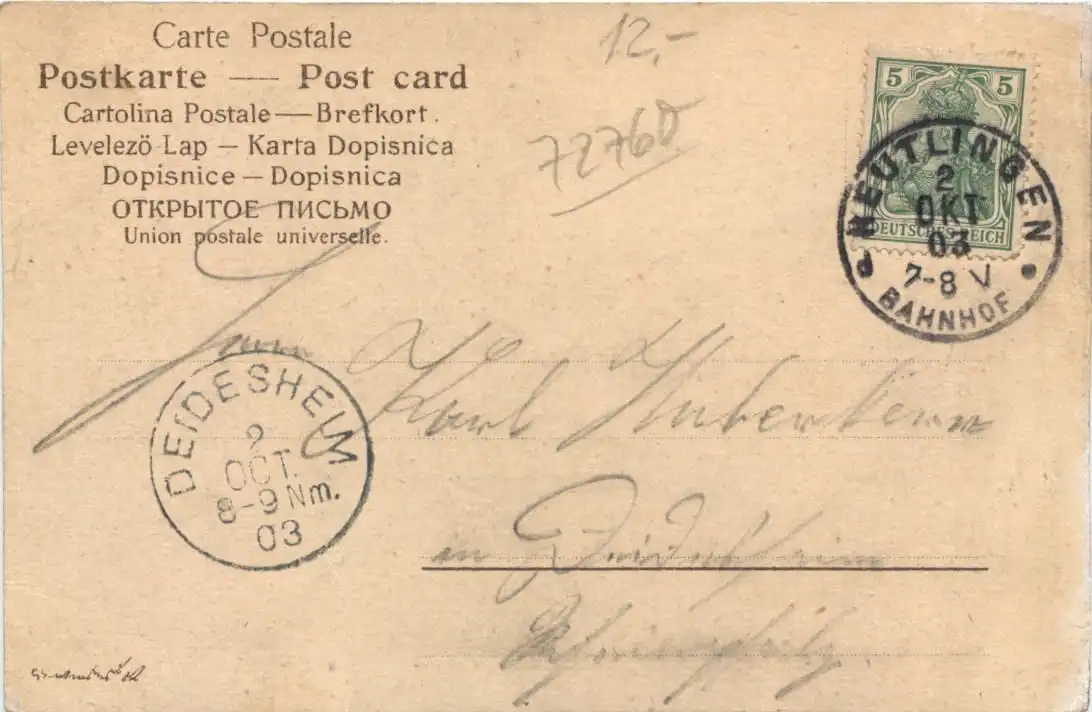 Carte Postale
Postkarte — Post card
Cartolina Postale — Brefkort.
Levelezö Lap — Karta Dopisnica
Dopisnice — Dopisnica
ОТКРЫТОЕ ПИСЬМО
Union postale universelle.
12,-
72760
5 5
DEUTSCHES REICH
2
OKT
03
7-8 V
BAHNHOF
Karl
DEIDESHEIM
2
OCT.
8-9 Nm.
03
in Deidesheim
Rheinpfalz